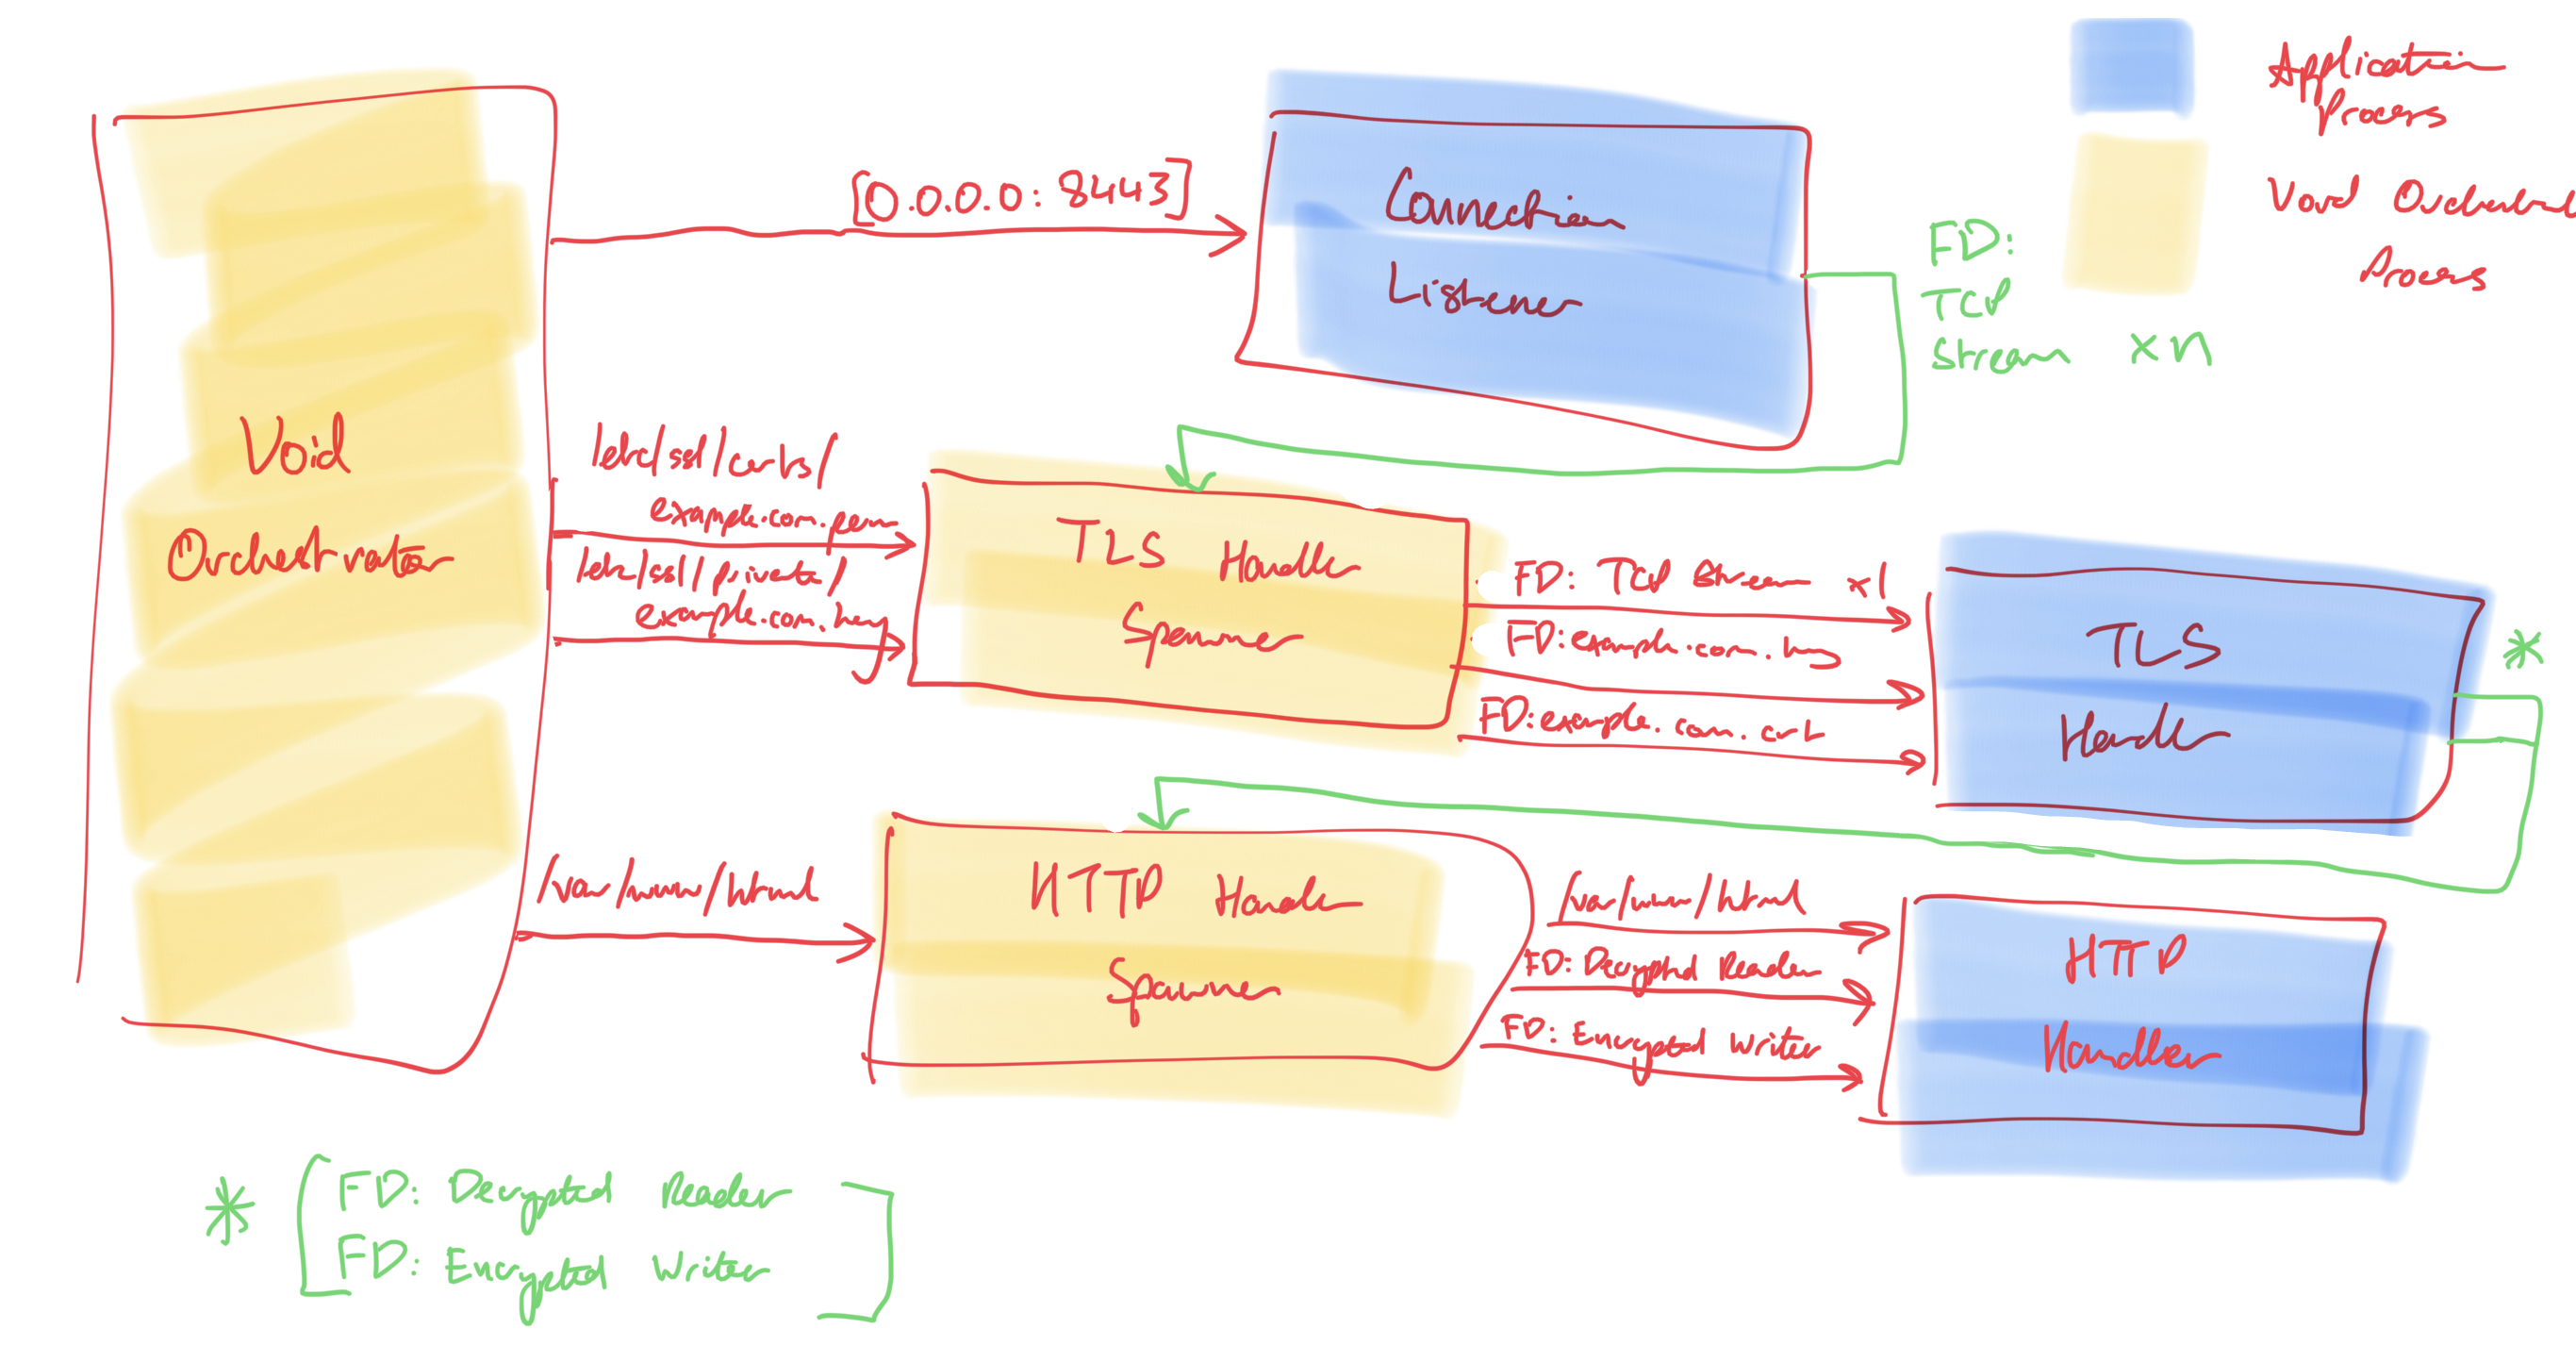 Application
Process
Void
Process
[0.0.0.0:8443]
Connection
Listener
FD:
TCP
Stream xn
Void
Orchestrator
/etc/ssl/certs/
example.com.pem
/etc/ssl/private/
example.com.key
TLS Handler
Spawner
FD: TCP Stream x1
FD:example.com.key
FD:example.com.crt
TLS
Handler
*
/var/www/html
HTTP Handler
Spawner
/var/www/html
FD: Decrypted Reader
FD: Encrypted Writer
HTTP
Handler
* [FD: Decrypted Reader
FD: Encrypted Writer]